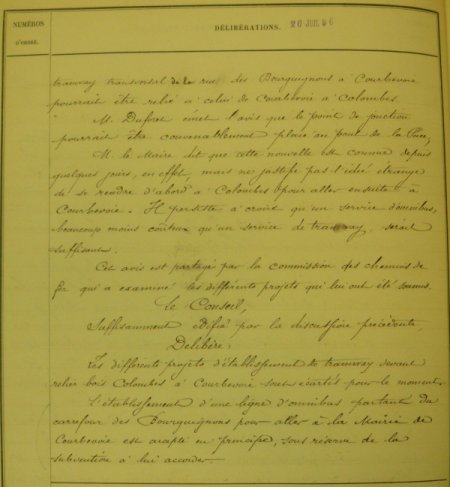 NUMÉROS
D'ORDRE.
DÉLIBÉRATIONS.
tramway transversal de la rue des Bourguignons à Courbevoie
pourrait être relié à celui de Courbevoie à Colombes.
M. Dufrot émet l'avis que le point de jonction
pourrait être convenablement placé au pont de la
M. le Maire dit que cette nouvelle est connue depuis
quelques jours, en effet, mais ne justifie pas l'idée étrange
de se rendre d'abord à Colombes pour aller ensuite à
Courbevoie. Il persiste à croire qu'un service d'omnibus,
beaucoup moins coûteux qu'un service de tramway, serait
suffisant.
Cet avis est partagé par la commission des chemins de
fer qui a examiné les différents projets qui lui ont été soumis.
Le Conseil,
Suffisamment édifié par la discussion précédente,
Délibère:
Les différents projets d'établissement de tramway devant
relier bois Colombes à Courbevoie sont écartés pour le moment.
L'établissement d'une ligne d'omnibus partant du
carrefour des Bourguignons pour aller à la Mairie de
Courbevoie est adopté en principe, sous réserve de la
subvention à lui accorder.